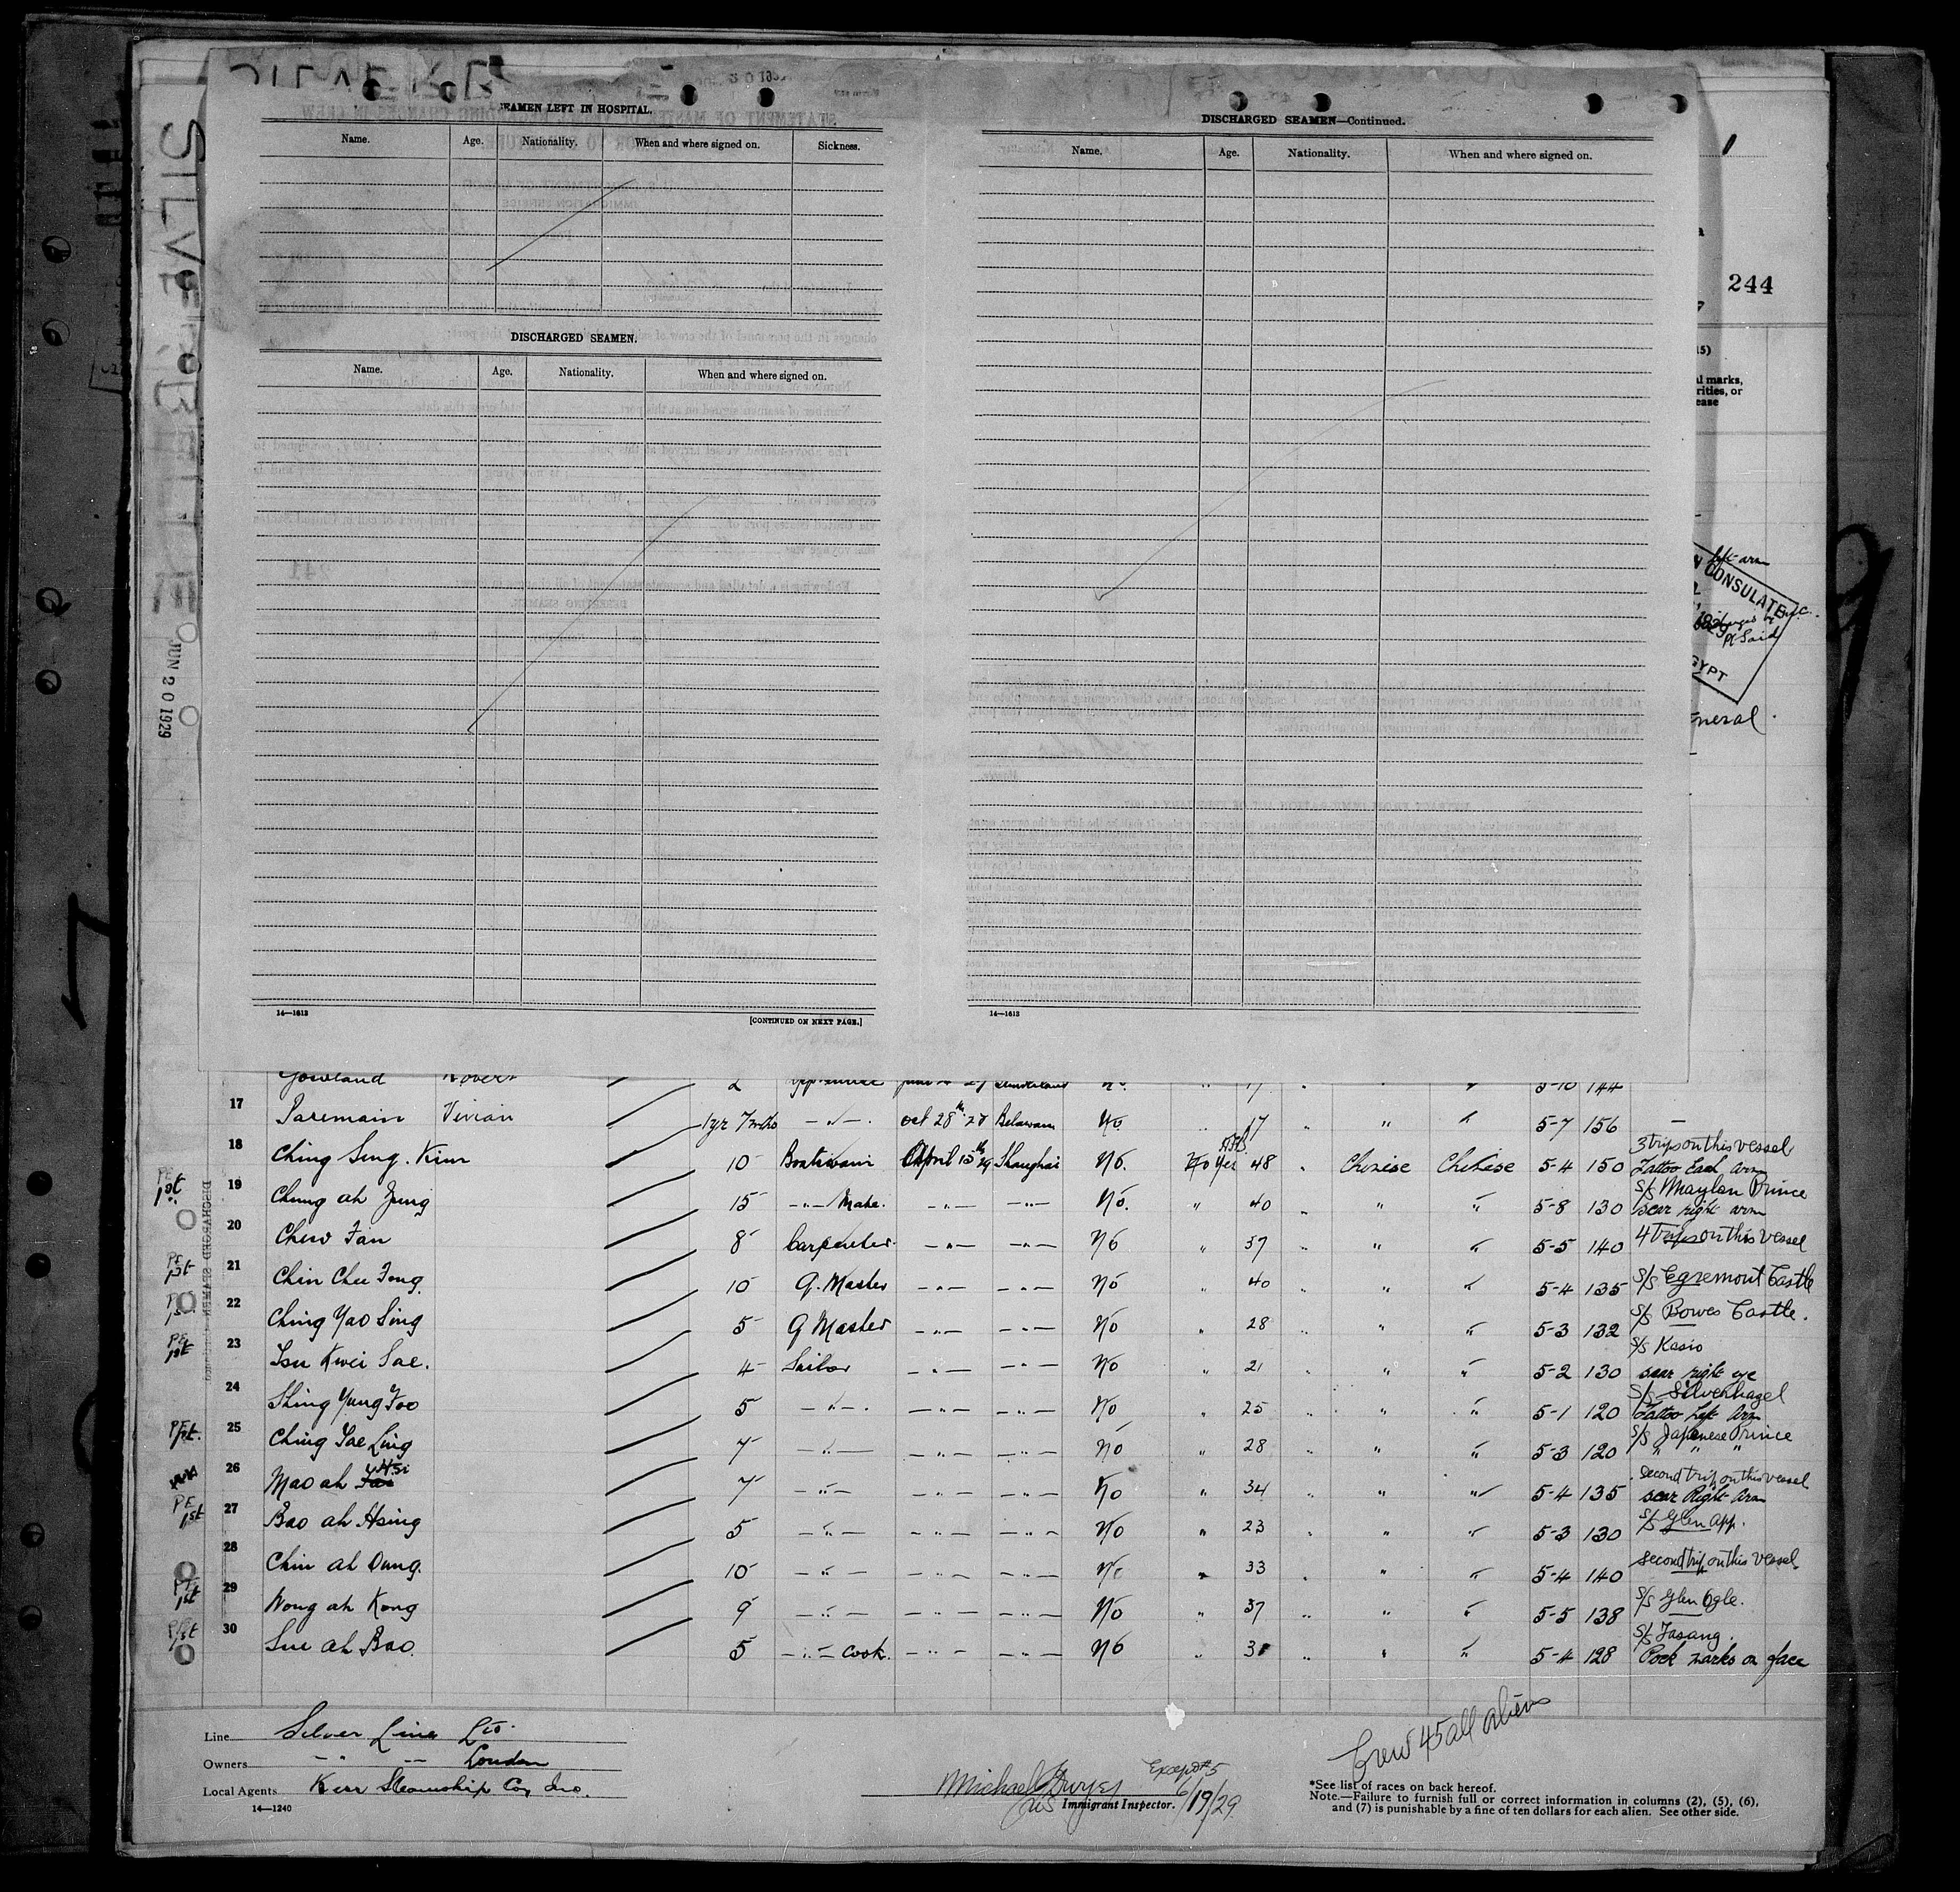 SILVERBELLE
JUN 20 1929
SEAMEN LEFT IN HOSPITAL.
Name. Age. Nationality. When and where signed on. Sickness.
DISCHARGED SEAMEN.
Name. Age. Nationality. When and where signed on.
14—1613
[CONTINUED ON NEXT PAGE.]
DISCHARGED SEAMEN—Continued.
Name. Age. Nationality. When and where signed on.
14—1613
1
244
left arm
CONSULATE
Pt Said
Gowland Robert 2 5-10 144
17 Paremain Vivian 1 yr 7 mths — " — Oct 28th 28 Belawan No 17 " " " 5-7 156 —
18 Ching Sing Kim 10 Boatswain April 15th 29 Shanghai No. No Yes 48 " Chinese Chinese 5-4 150 3 trips on this vessel Tattoo Each Arm
PE 1st 19 Chung ah Zung 15 — " — Mate. — " — — " — No. " 40 " " " 5-8 130 S/S Maylan Prince scar right arm
20 Chew Fan 8 Carpenter — " — — " — No " 37 " " " 5-5 140 4 trips on this vessel
PE 1st 21 Chin Chu Fong 10 Q. Master — " — — " — No " 40 " " " 5-4 135 S/S Egremont Castle
PE 1st 22 Ching Yao Sing 5 Q Master — " — — " — No " 28 " " " 5-3 132 S/S Bowes Castle.
PE 1st 23 Tsu Kwei Sae. 4 Sailor — " — — " — No " 21 " " " 5-2 130 S/S Kasio scar right eye
24 Shing Yung Foo 5 — " — — " — — " — No " 25 " " " 5-1 120 S/S Silverhazel Tattoo Left Arm
PE 1st. 25 Ching Sae Ling 7 — " — — " — — " — No " 28 " " " 5-3 120 S/S Japanese Prince " " "
26 Mao ah 7 — " — — " — — " — No " 34 " " " 5-4 135 second trip on this vessel scar Right Arm
PE 1st 27 Bao ah Hsing 5 — " — — " — — " — No " 23 " " " 5-3 130 S/S Glen app.
28 Chin ah Dung. 10 — " — — " — — " — No " 33 " " " 5-4 140 second trip on this vessel
PE 1st 29 Wong ah Kong 9 — " — — " — — " — No " 37 " " " 5-5 138 S/S Glen Ogle.
PE 1st 30 Sue ah Bao. 5 — " — Cook. — " — — " — No " 31 " " " 5-4 128 S/S Fasang. Pock marks on face
DISCHARGED SEAMEN
Line Silver Line Ltd.
Owners — " — London
Local Agents Kerr Steamship Co, Inc.
14—1240
Except #5
6/19/29
Immigrant Inspector.
Crew 45 all aliens
*See list of races on back hereof.
Note.—Failure to furnish full or correct information in columns (2), (5), (6),
and (7) is punishable by a fine of ten dollars for each alien. See other side.